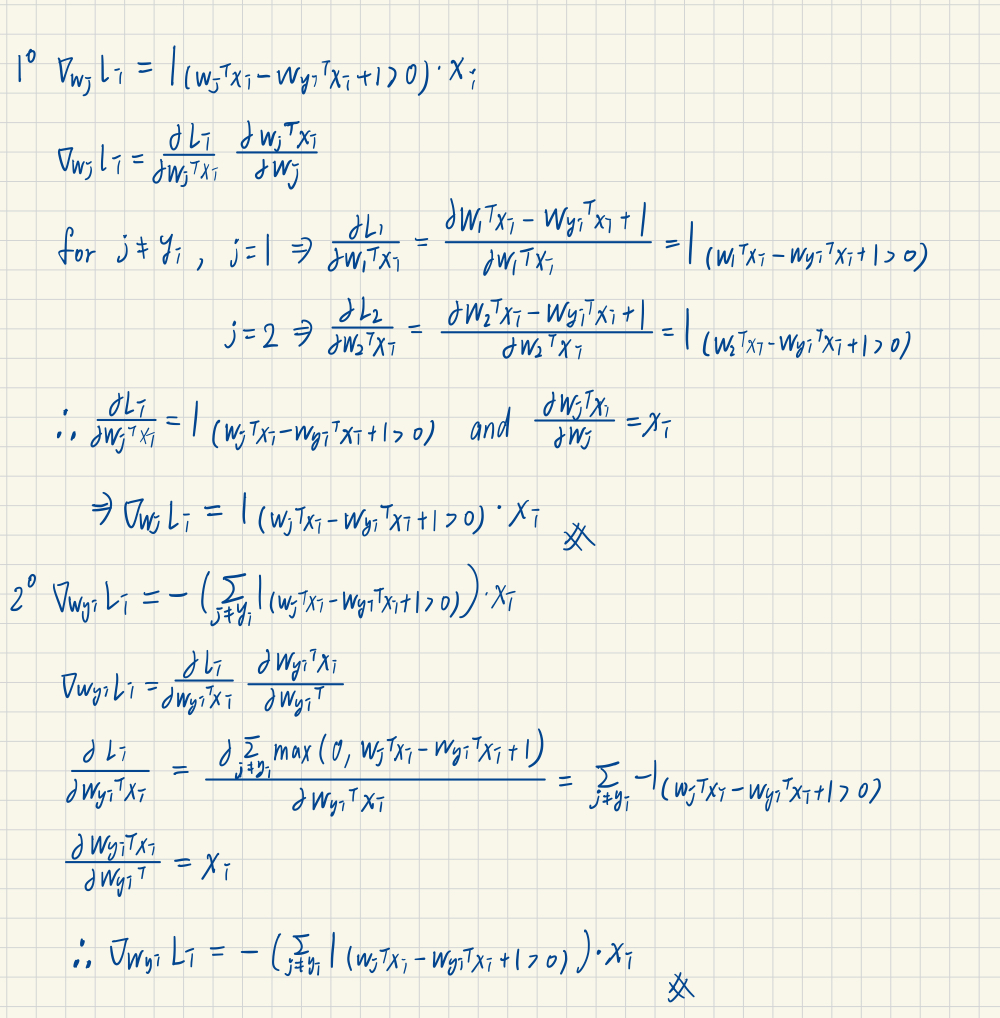 1° ∇_{w_j} L_i = 1_{(w_j^T x_i − w_{y_i}^T x_i + 1 > 0)} · x_i
∇_{w_j} L_i = \frac{∂L_i}{∂w_j^T x_i} \frac{∂w_j^T x_i}{∂w_j}
for j ≠ y_i , j = 1 ⇒ \frac{∂L_1}{∂w_1^T x_1} = \frac{∂w_1^T x_i − w_{y_i}^T x_i + 1}{∂w_1^T x_i} = 1_{(w_1^T x_i − w_{y_i}^T x_i + 1 > 0)}
j = 2 ⇒ \frac{∂L_2}{∂w_2^T x_i} = \frac{∂w_2^T x_i − w_{y_i}^T x_i + 1}{∂w_2^T x_i} = 1_{(w_2^T x_i − w_{y_i}^T x_i + 1 > 0)}
∴ \frac{∂L_i}{∂w_j^T x_i} = 1_{(w_j^T x_i − w_{y_i}^T x_i + 1 > 0)} and \frac{∂w_j^T x_i}{∂w_j} = x_i
⇒ ∇_{w_j} L_i = 1_{(w_j^T x_i − w_{y_i}^T x_i + 1 > 0)} · x_i
2° ∇_{w_{y_i}} L_i = − ( \sum_{j≠y_i} 1_{(w_j^T x_i − w_{y_i}^T x_i + 1 > 0)} ) · x_i
∇_{w_{y_i}} L_i = \frac{∂L_i}{∂w_{y_i}^T x_i} \frac{∂w_{y_i}^T x_i}{∂w_{y_i}^T}
\frac{∂L_i}{∂w_{y_i}^T x_i} = \frac{∂ \sum_{j≠y_i} max(0, w_j^T x_i − w_{y_i}^T x_i + 1)}{∂w_{y_i}^T x_i} = \sum_{j≠y_i} −1_{(w_j^T x_i − w_{y_i}^T x_i + 1 > 0)}
\frac{∂w_{y_i}^T x_i}{∂w_{y_i}^T} = x_i
∴ ∇_{w_{y_i}} L_i = − ( \sum_{j≠y_i} 1_{(w_j^T x_i − w_{y_i}^T x_i + 1 > 0)} ) · x_i